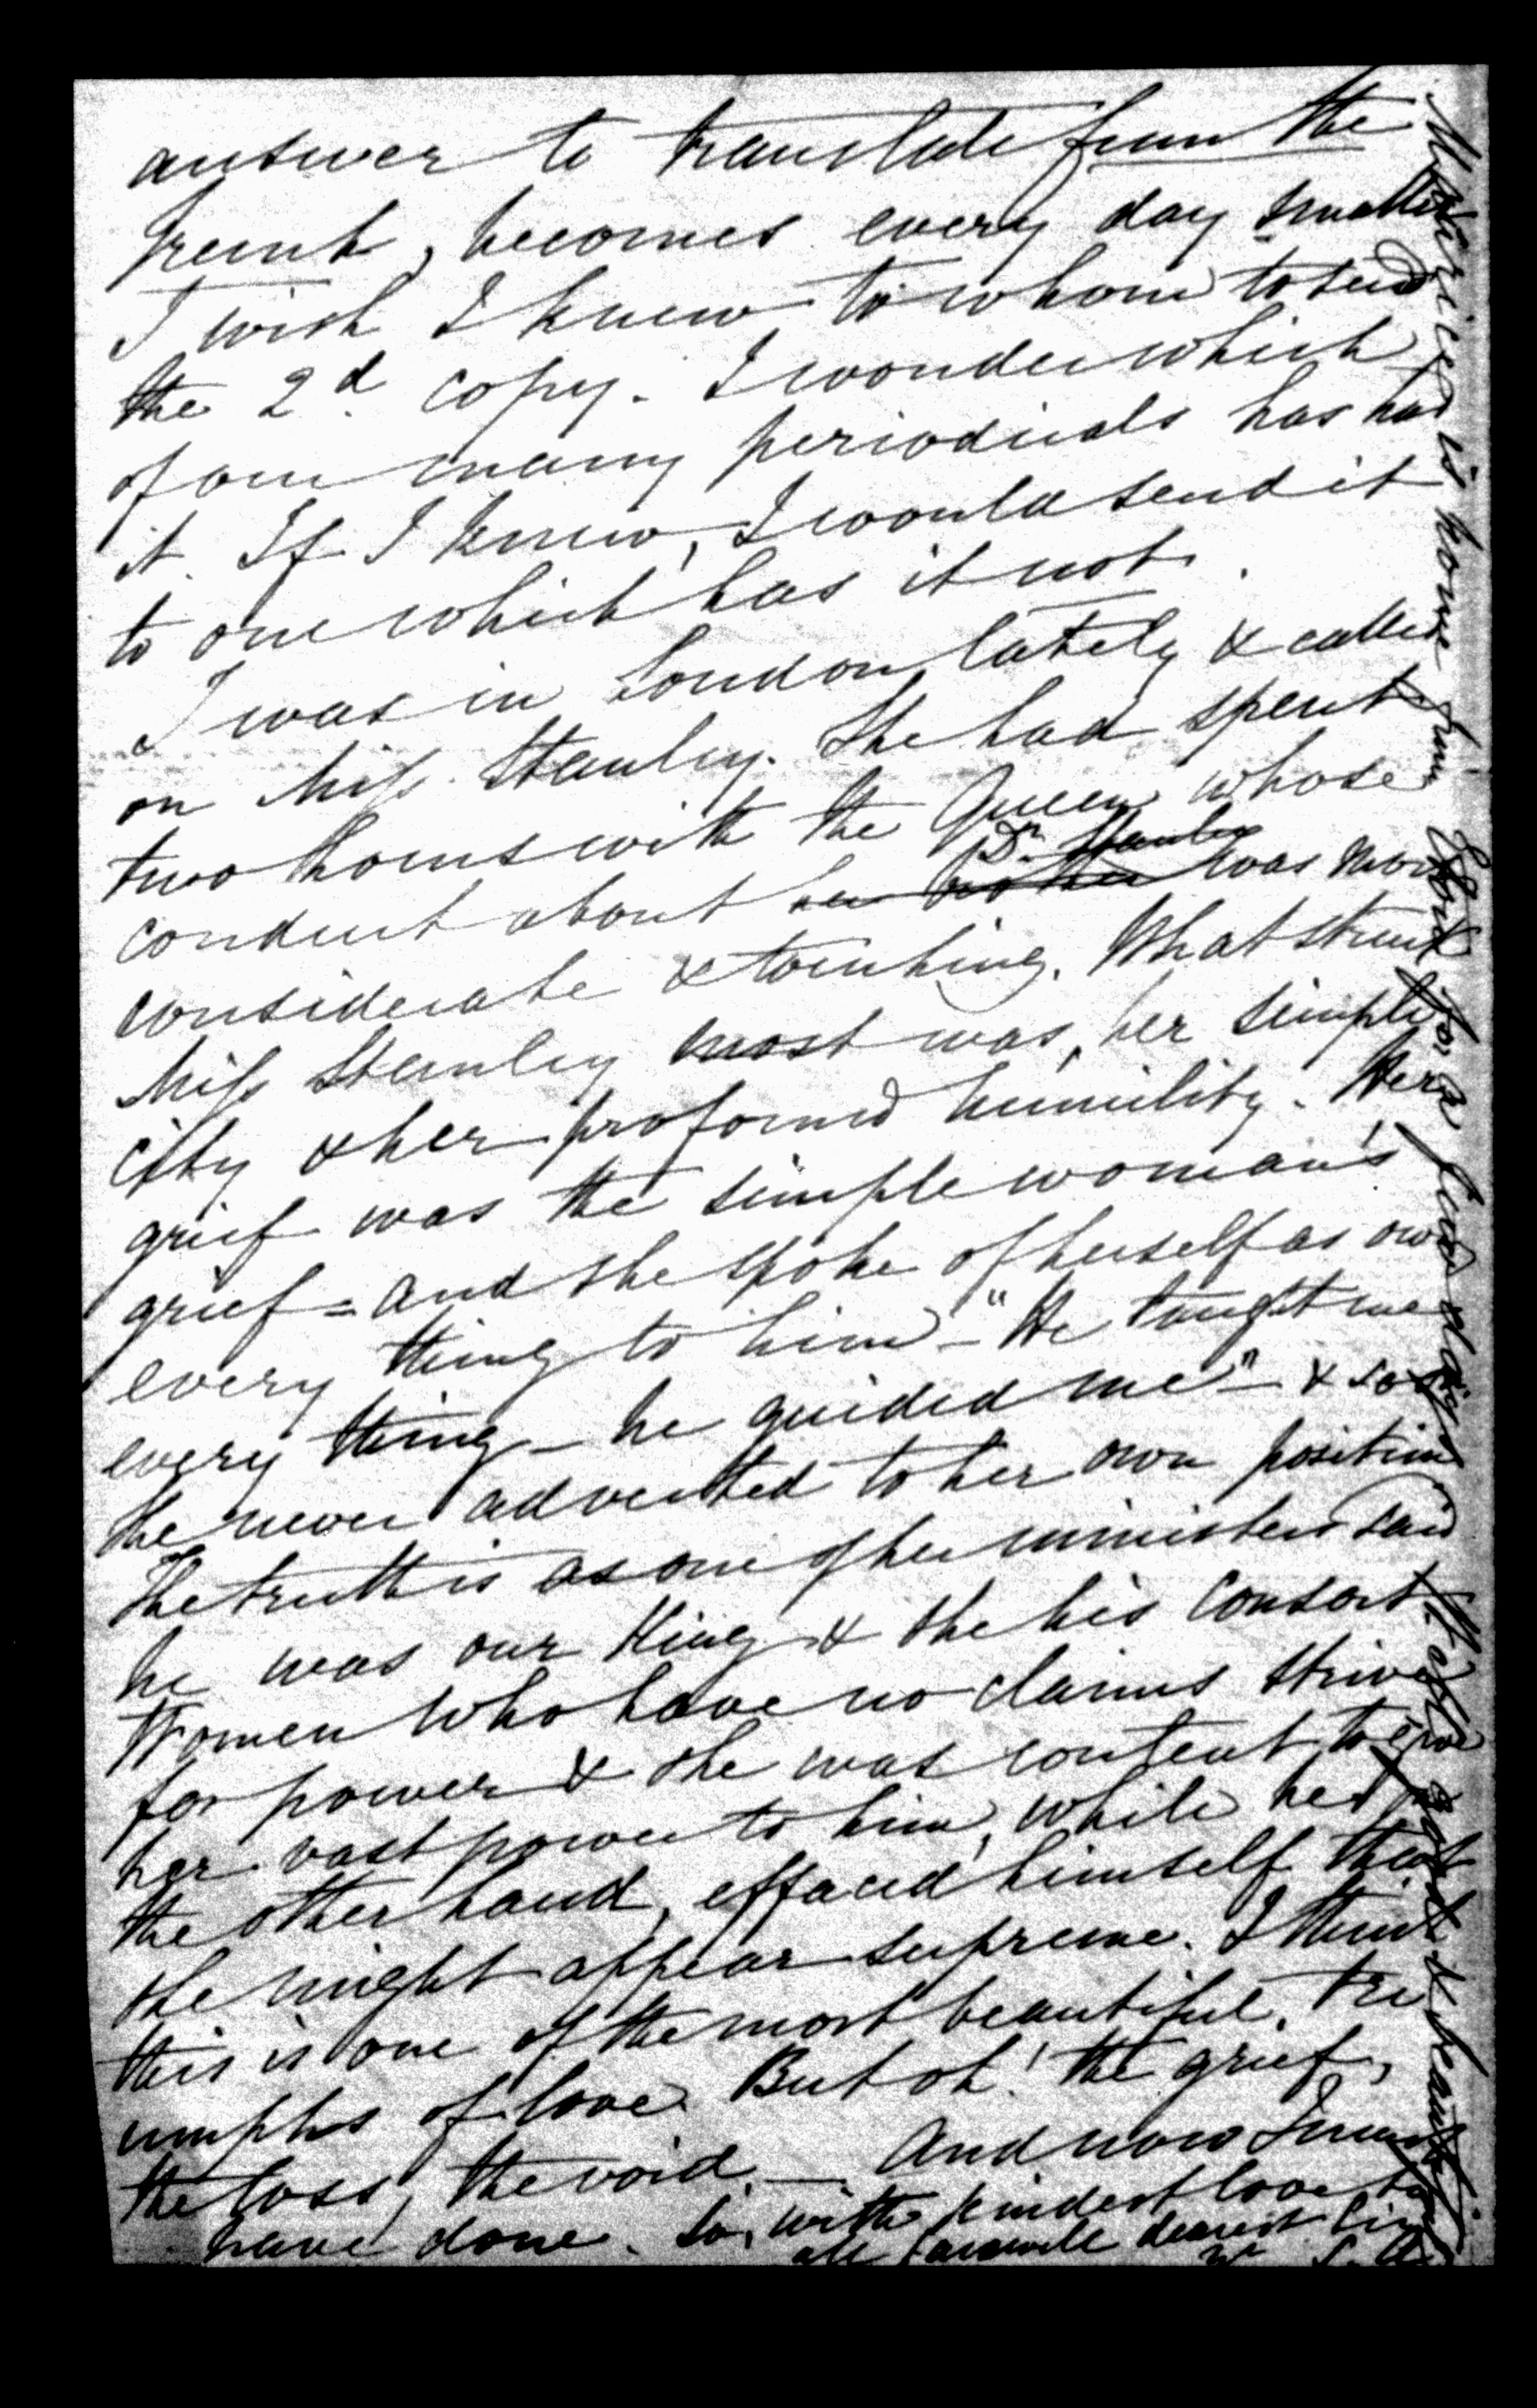 answer to translate from the
French, becomes every day smaller
I wish I knew to whom to send
the 2d copy. I wonder which
of our many periodicals has had
it. If I knew, I would send it
to one which has it not.
I was in London lately & called
on Miss Stanley. She had spent
two hours with the Queen whose
Dr. Stanley
conduct about her brother was most
considerate & touching. What struck
Miss Stanley most was, her simpli
city & her profound humility. Her
grief was the simple woman's
grief = and she spoke of herself as owing
every thing to him - "He taught me
every thing - he guided me" - & so
she never adverted to her own position
The truth is as one of her ministers said
he was our King & she his Consort
Women who have no claims strive
for power & she was content to give
her vast power to him, while he, on
the other hand, effaced himself that
she might appear supreme. I think
this is one of the most beautiful tri
umphs of love. But oh! the grief,
the loss, the void. — And now I must
have done. So, with kindest love to
all farewell dearest
Maurice is home from for a few days